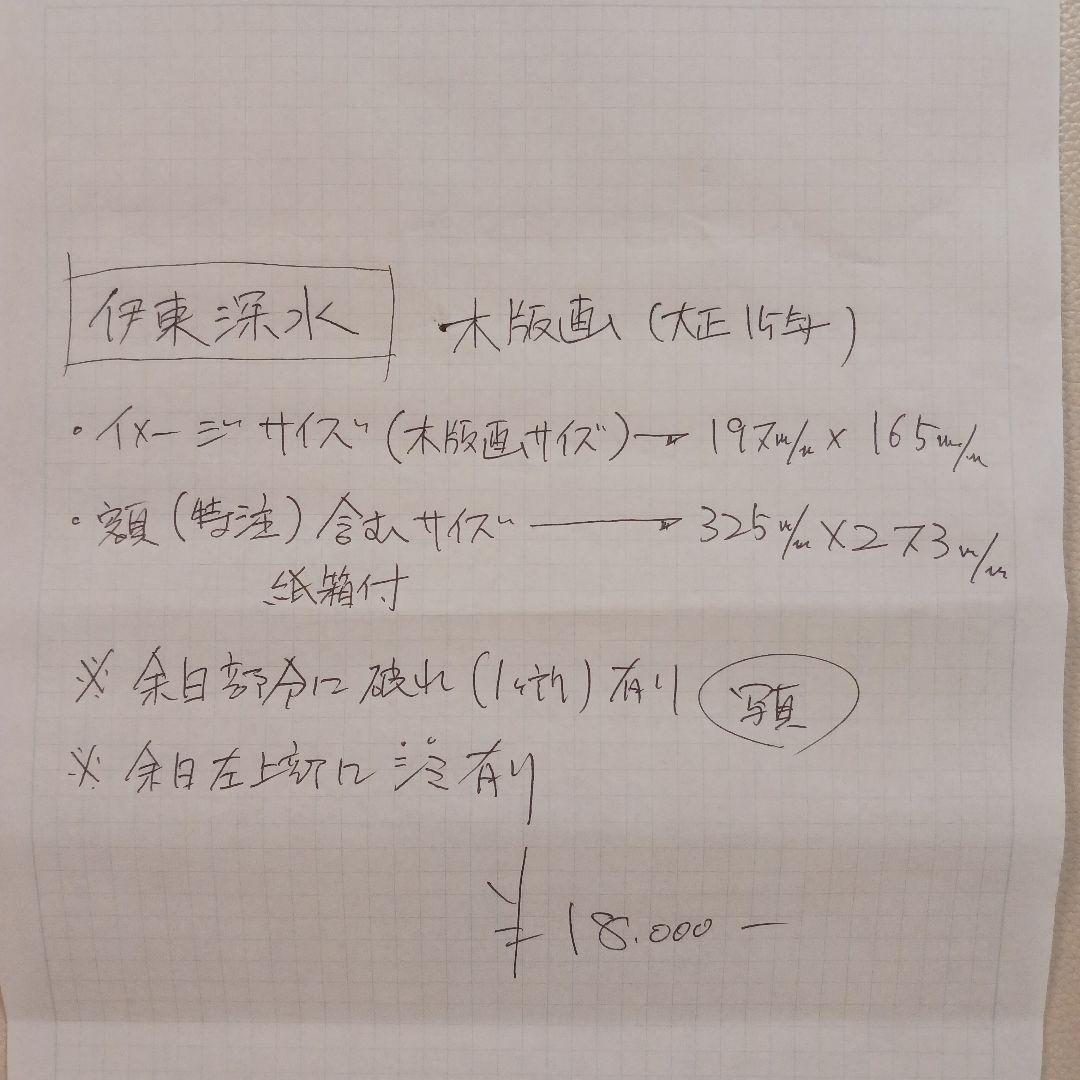 伊東深水 木版画 (大正15年)
・イメージサイズ (木版画サイズ) → 197m/m × 165m/m
・額 (特注) 含むサイズ → 325m/m × 273m/m
紙箱付
※ 余白部分に破れ (1ヶ所) 有り 写真
※ 余白左上部に 有り
¥18.000ー